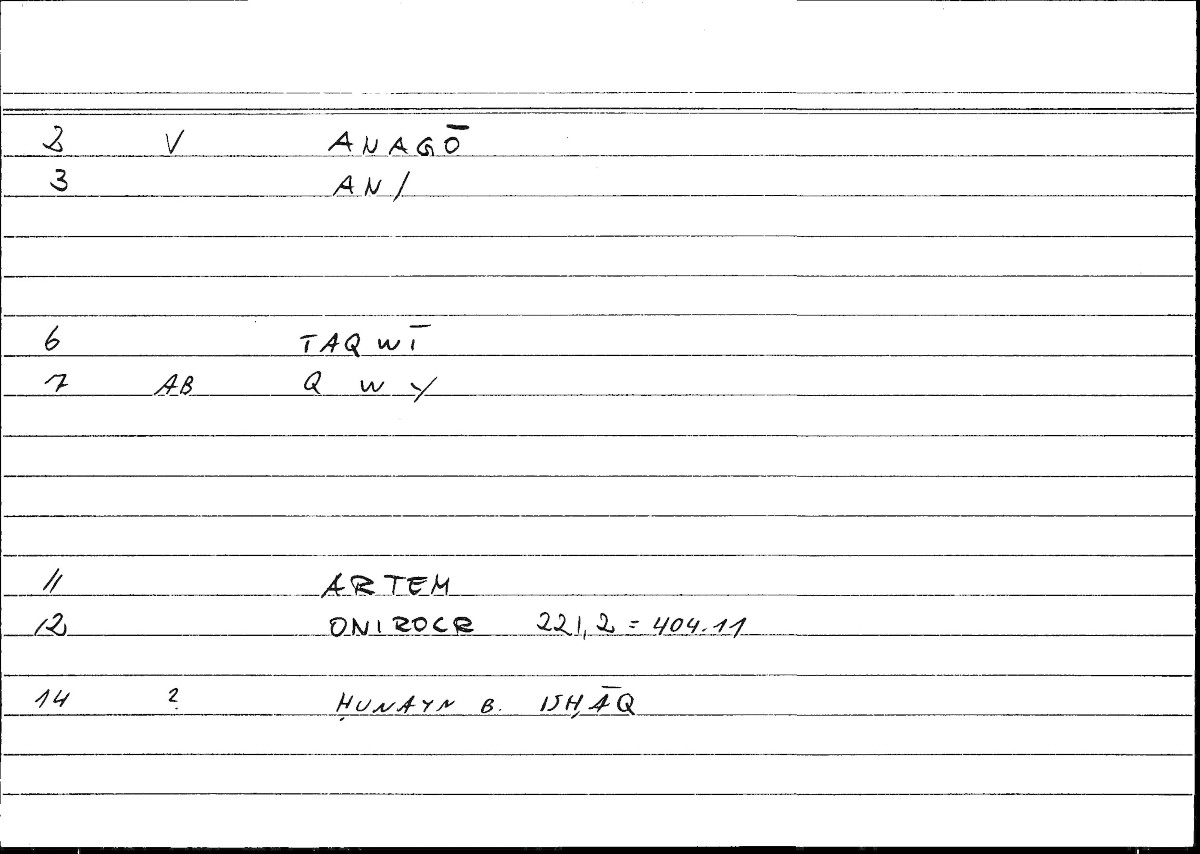 2 V ANAGŌ
3 AN/
6 TAQWĪ
7 AB QWY
11 ARTEM
12 ONIROCR 221,2 = 404.11
14 ? ḤUNAYN B. ISḤĀQ